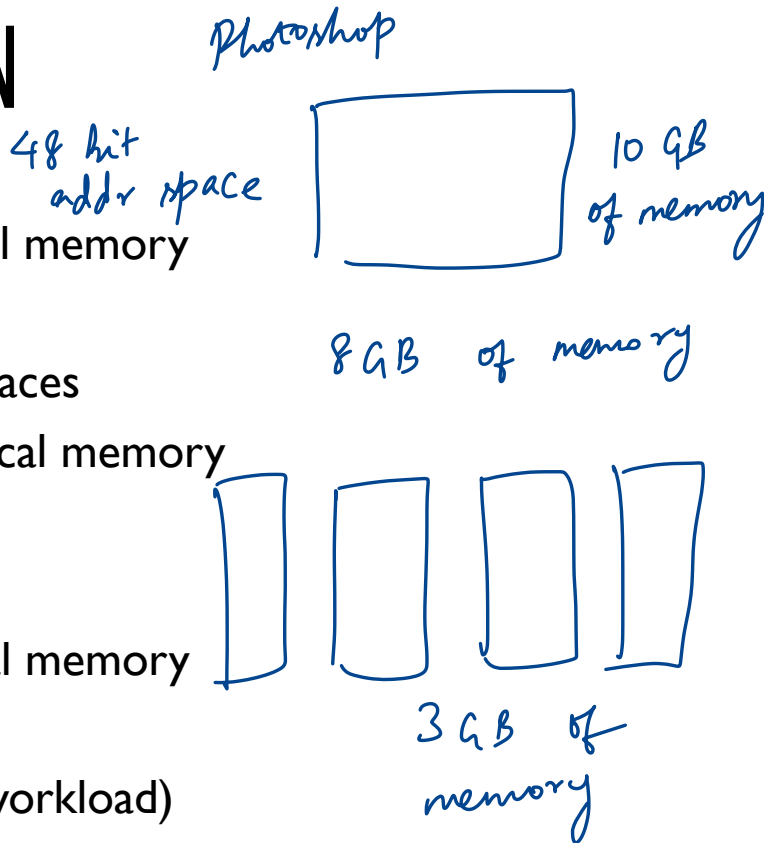 N
Photoshop
48 bit
addr space
10 GB
of memory
l memory
8 GB of memory
aces
cal memory
l memory
3 GB of
memory
vorkload)